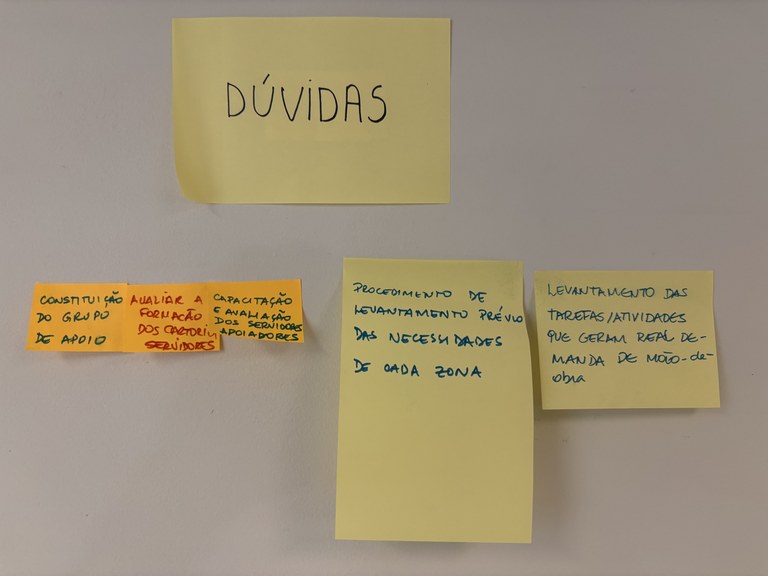 DÚVIDAS
CONSTITUIÇÃO
DO GRUPO
DE APOIO
AVALIAR A
FORMAÇÃO
DOS
SERVIDORES
CAPACITAÇÃO
E AVALIAÇÃO
DOS SERVIDORES
APOIADORES
PROCEDIMENTO DE
LEVANTAMENTO PRÉVIO
DAS NECESSIDADES
DE CADA ZONA
LEVANTAMENTO DAS
TAREFAS/ATIVIDADES
QUE GERAM REAL DE-
MANDA DE MÃO-de-
obra